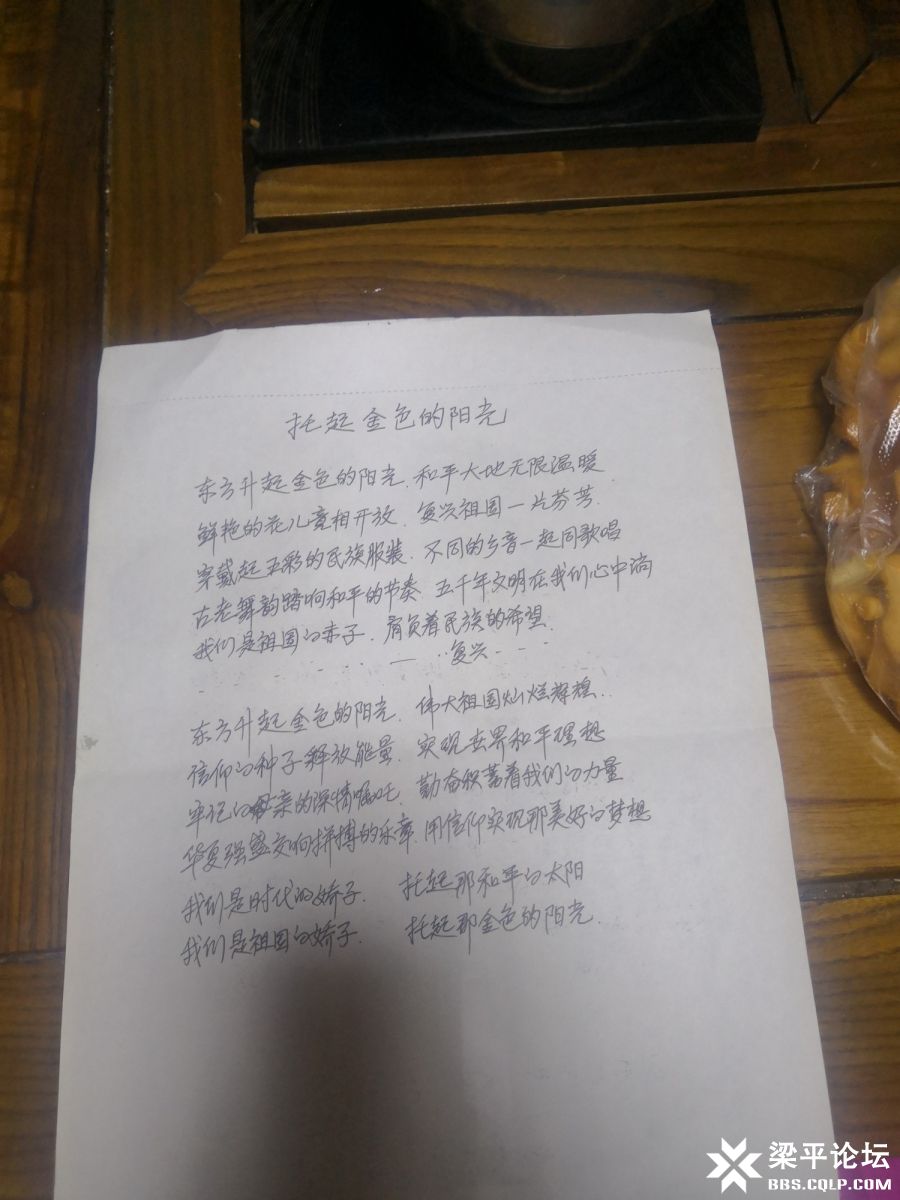 托起金色的阳光
东方升起金色的阳光.和平大地无限温暖.
鲜艳的花儿竟相开放.复兴祖国一片芬芳.
穿戴起五彩的民族服装.不同的乡音一起同歌唱
古老舞韵踏响和平的节奏 五千年文明在我们心中淌
我们是祖国的赤子.肩负着民族的希望.
复兴
东方升起金色的阳光.伟大祖国灿烂辉煌..
信仰的种子释放能量.实现世界和平理想
牢记母亲的深情嘱吒.勤奋积蓄着我们的力量
华夏强盛交响拼搏的乐章.用信仰实现那美好的梦想
我们是时代的娇子. 托起那和平的太阳
我们是祖国的娇子. 托起那金色的阳光.
梁平论坛
BBS.CQLP.COM